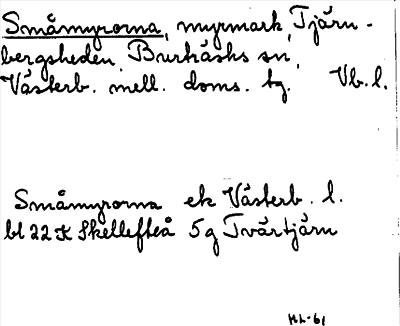 Småmyrorna, myrmark, Tjärn-
bergsheden, Burträsks sn,
Västerb. mell. doms. tg. Vb. l.
Småmyrorna ek Västerb. l.
bl 22 K Skellefteå 5g Tvärtjärn
HL-61